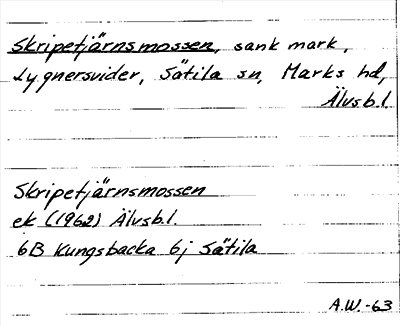 Skripetjärnsmossen, sank mark,
Lygnersvider, Sätila sn, Marks hd,
Älvsb.l.
Skripetjärnsmossen
ek (1962) Älvsb.l.
6B Kungsbacka 6j Sätila
A.W.-63